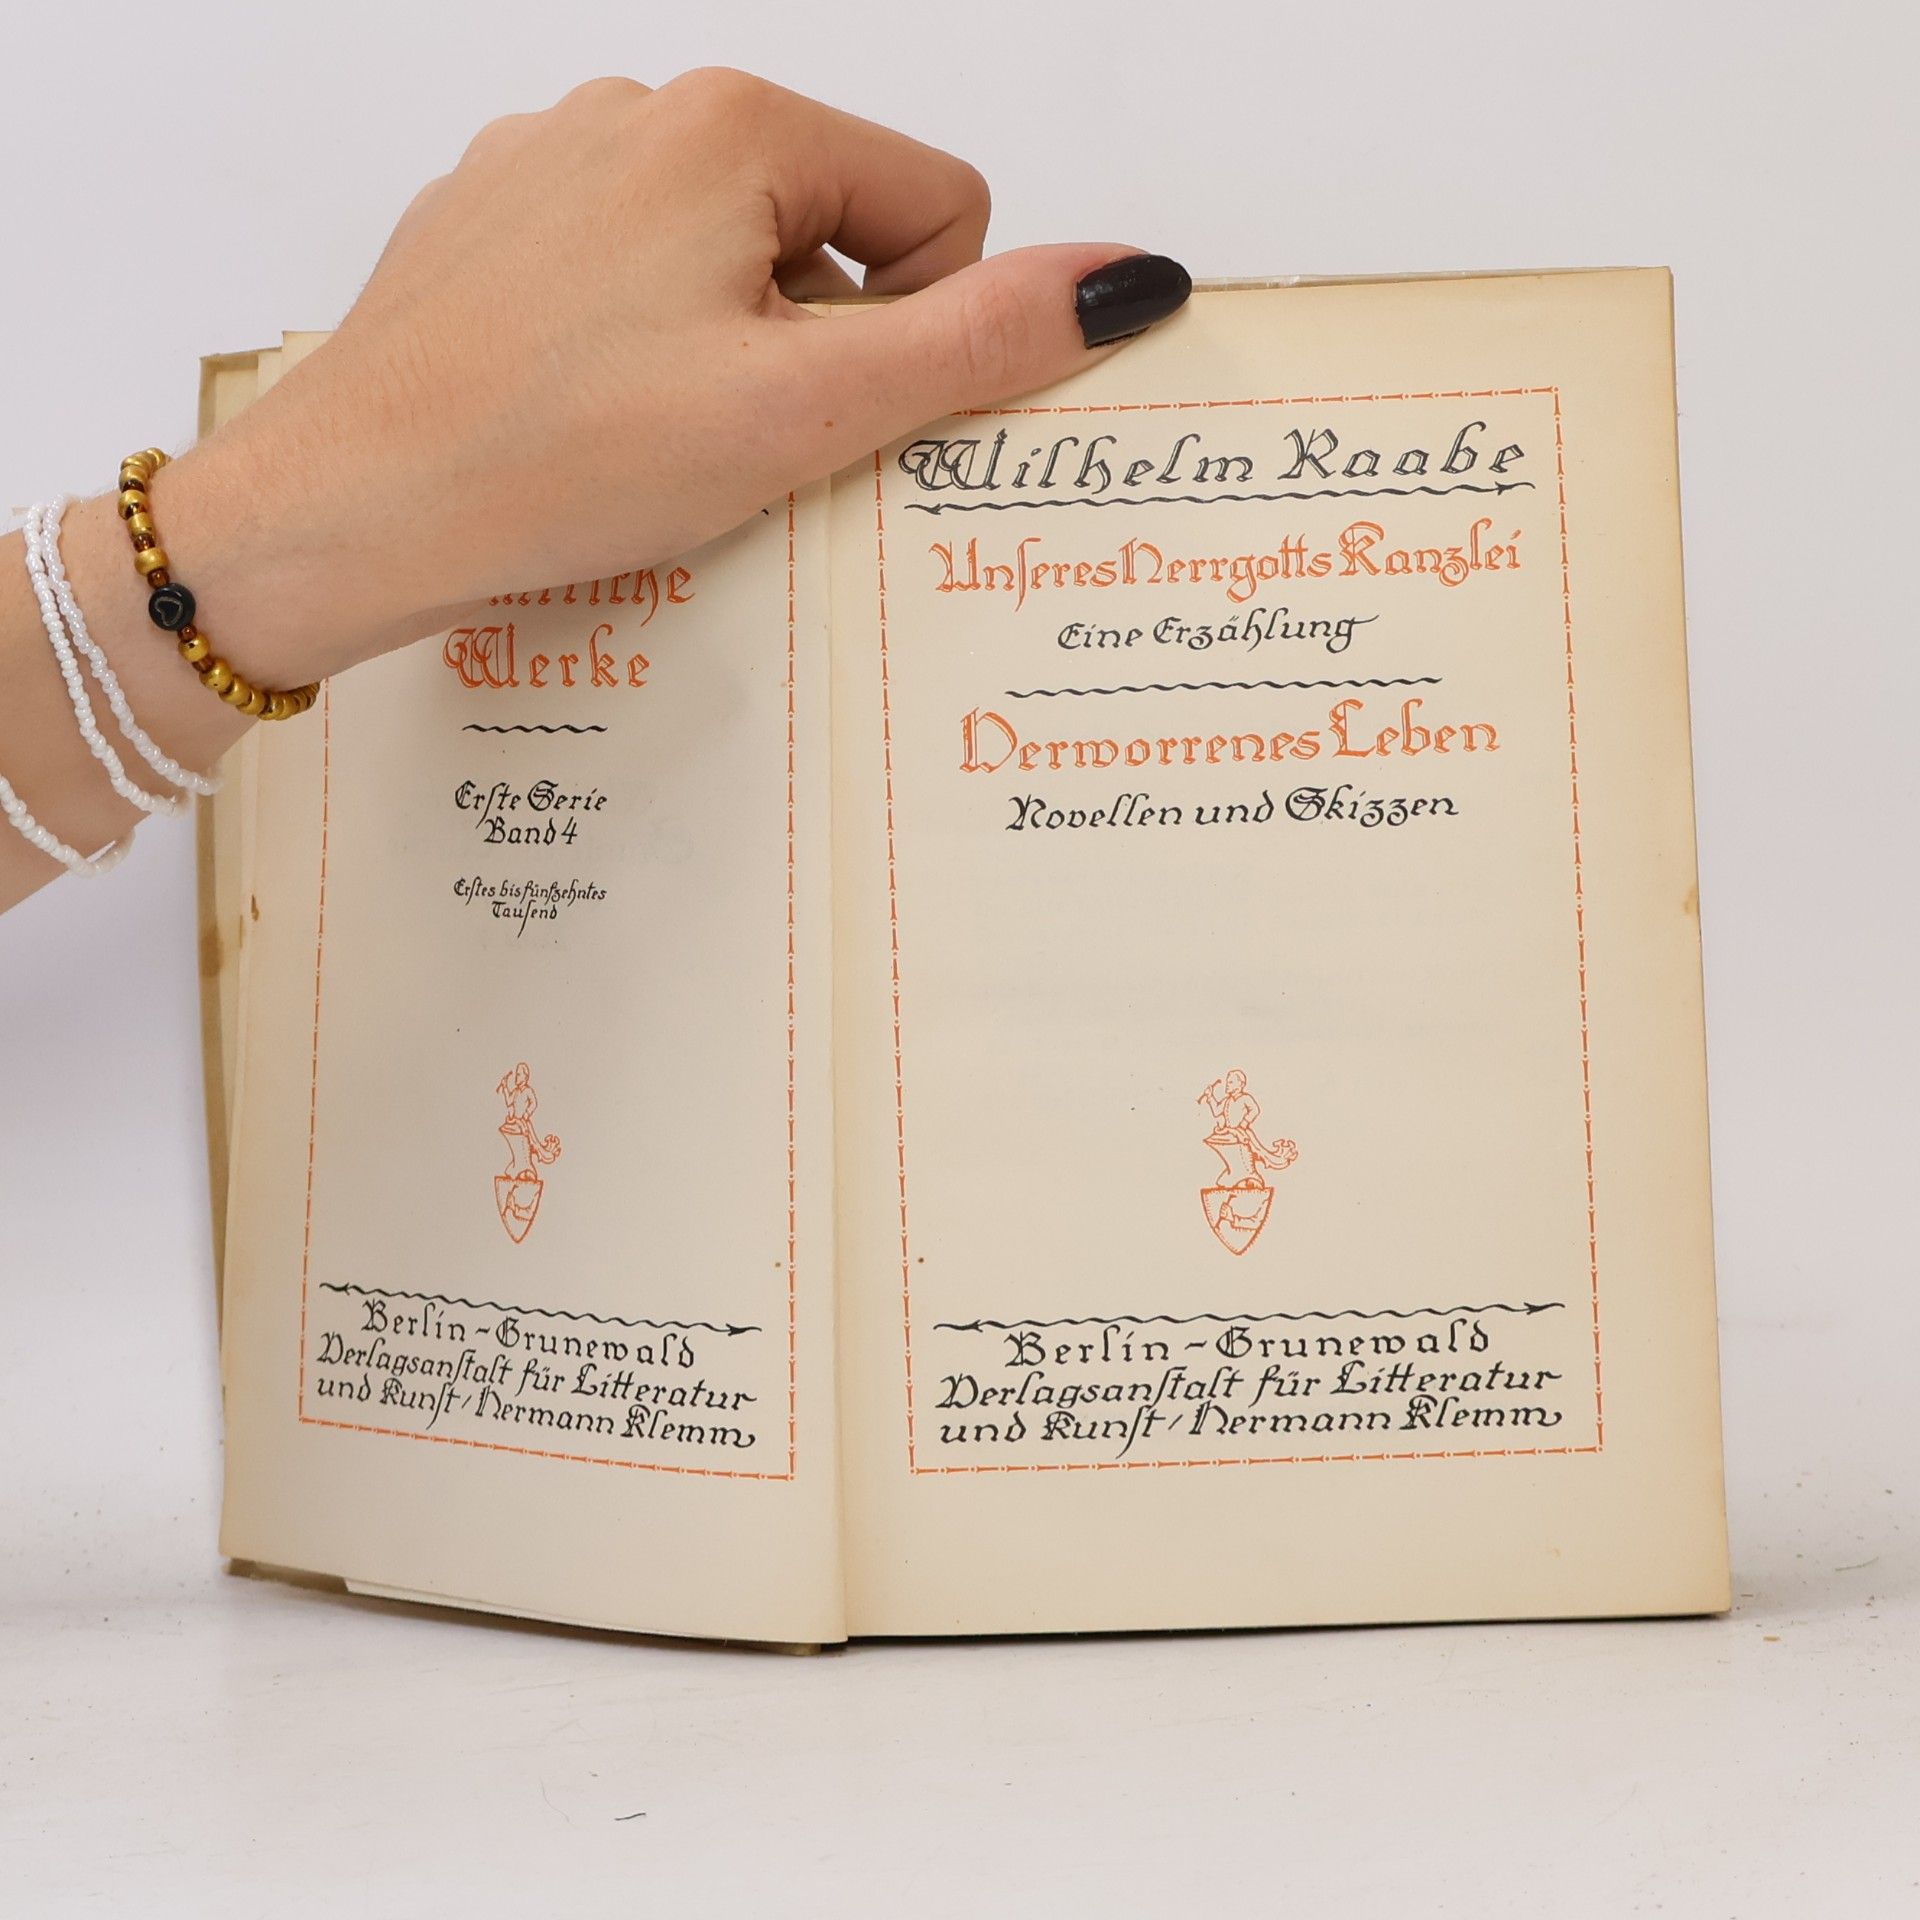 Werke
Erste Serie
Band 4
Erstes bis fünfzehntes
Tausend
Berlin-Grunewald
Verlagsanstalt für Litteratur
und Kunst / Hermann Klemm
Wilhelm Raabe
Unseres Herrgotts Kanzlei
Eine Erzählung
Verworrenes Leben
Novellen und Skizzen
Berlin-Grunewald
Verlagsanstalt für Litteratur
und Kunst / Hermann Klemm